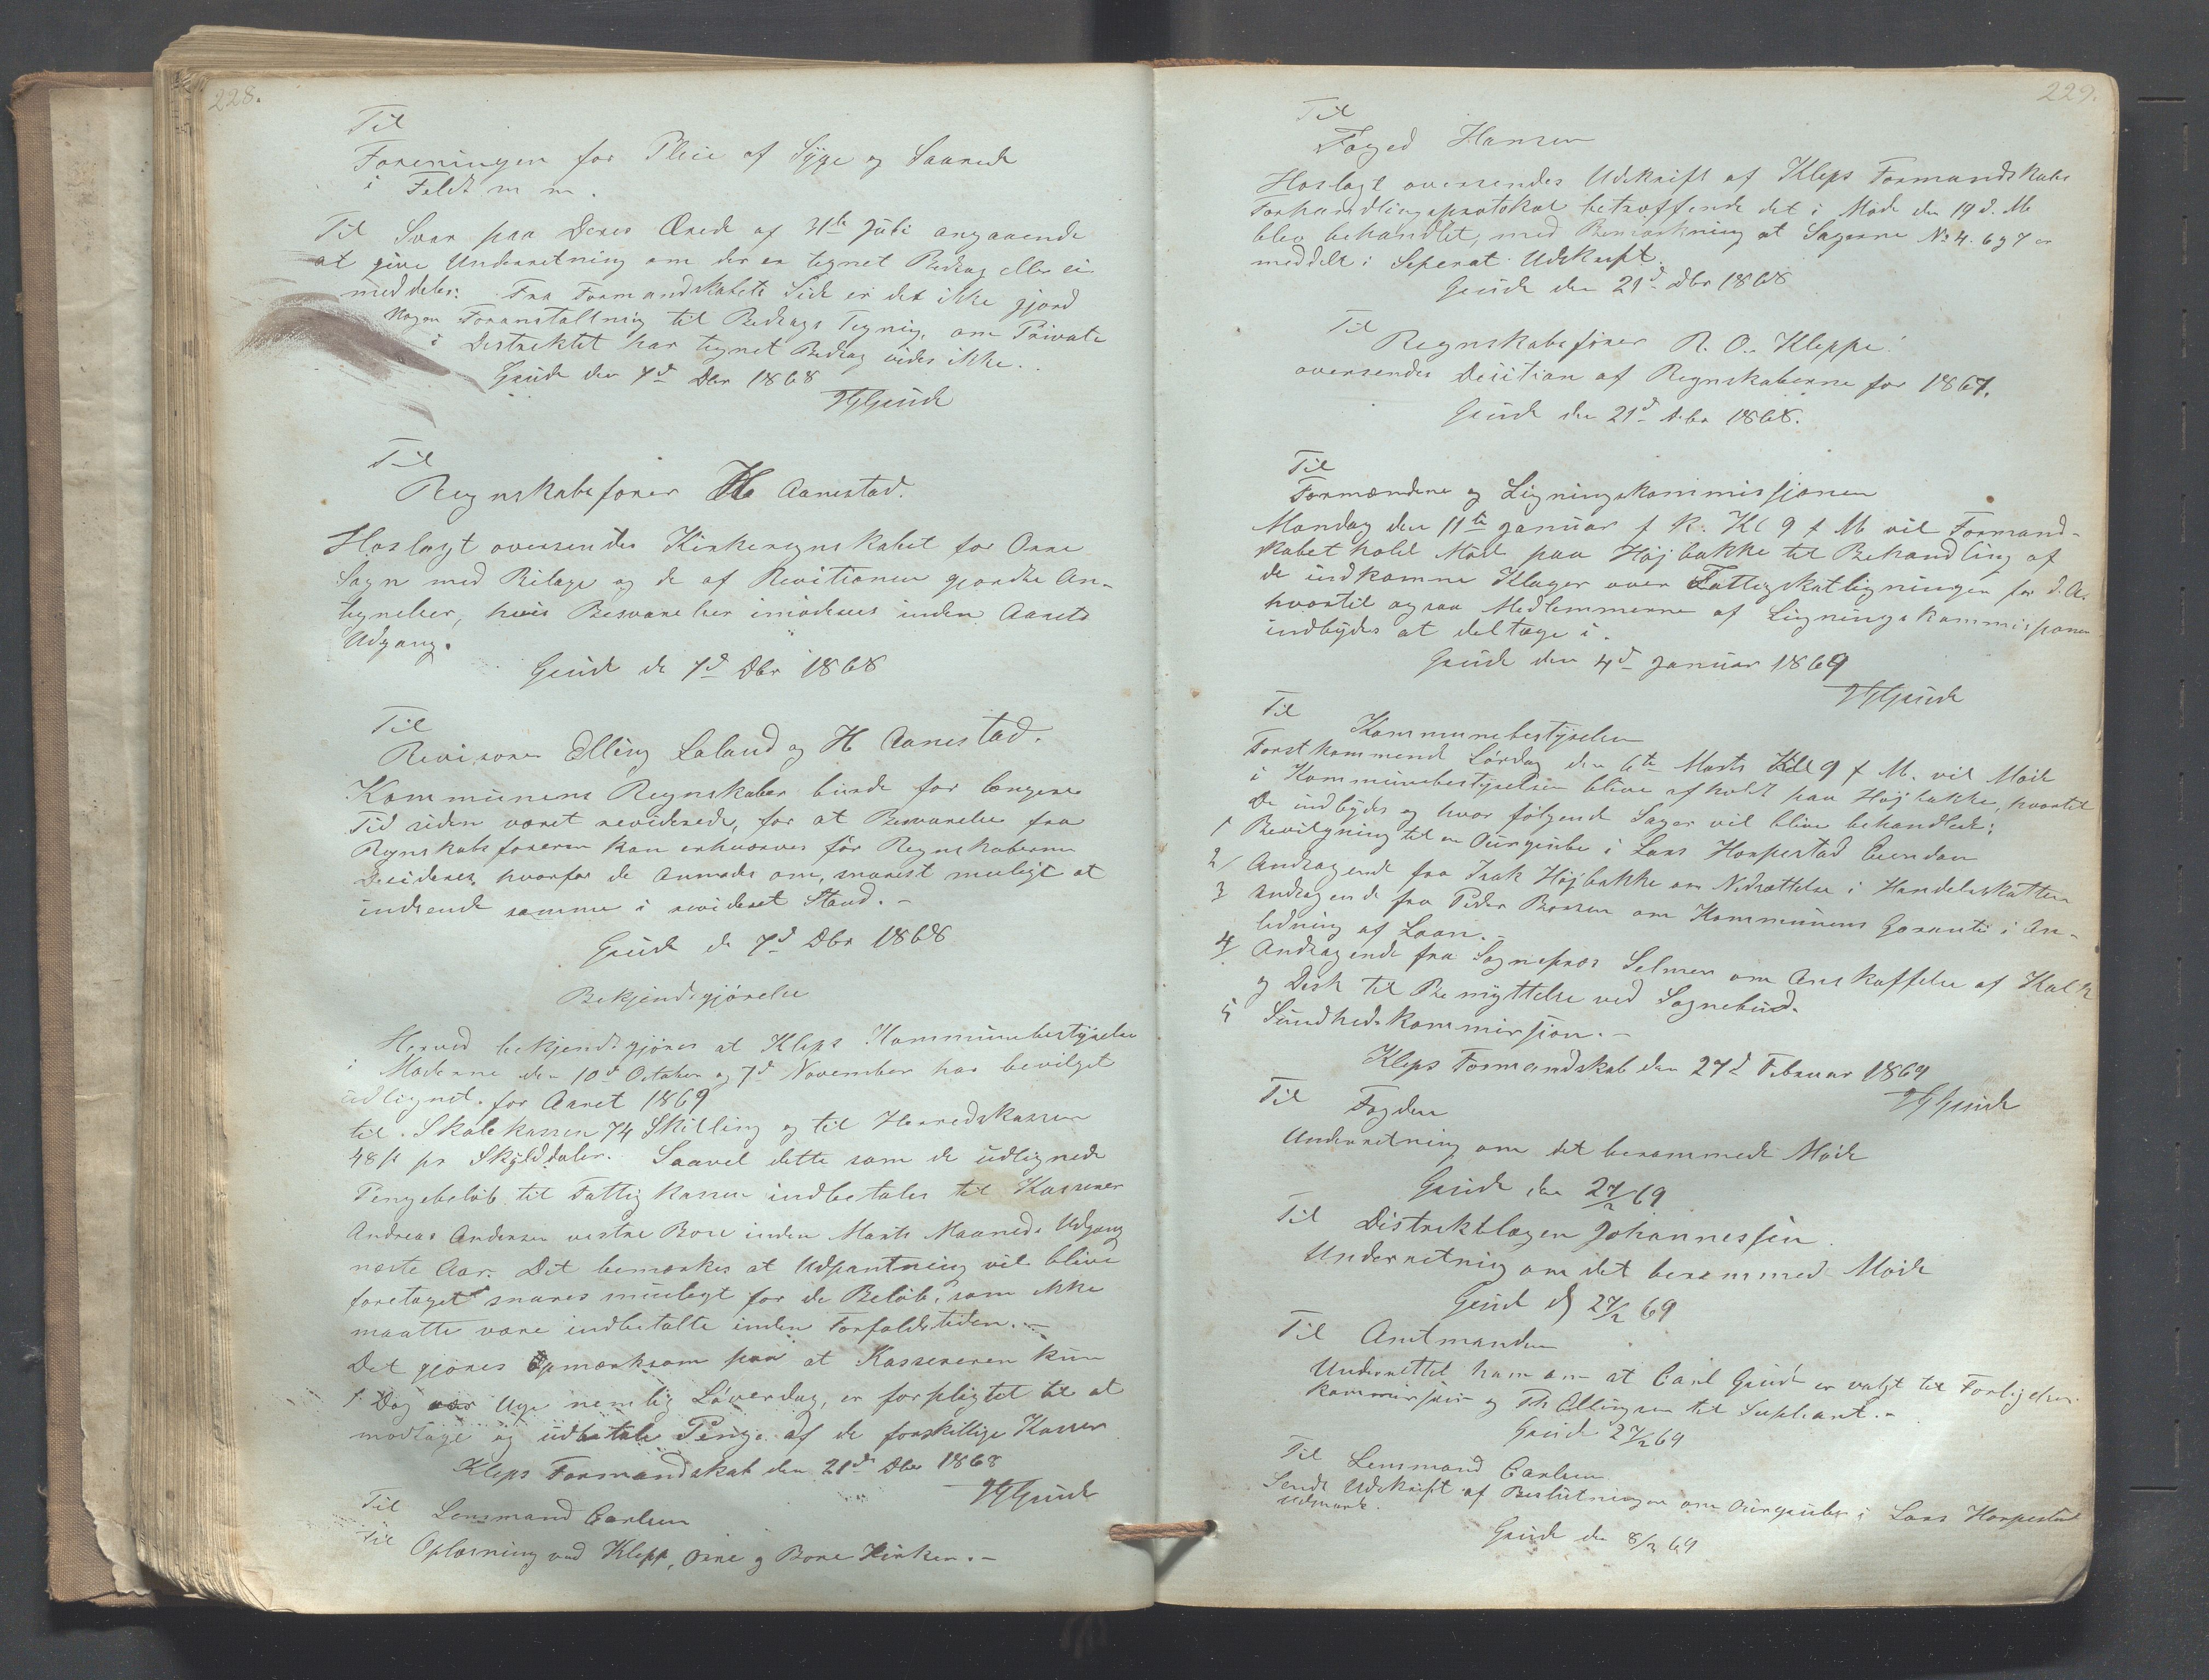 228.
Til
Foreningen for Pleie af Syge og Saarede
i Feldt m m.
Til Svar paa Deres Ærede af 31te Juli angaaende
at give Underretning om der er tegnet Bidrag eller ei
meddeles: Fra Formandskabets Side er det ikke gjord
Nogen Foranstaltning til Bedrags Tegning, om Private
i Destriktet har tegnet Bedrag vides ikke.
Grude den 7d Dbr 1868
Grude
Til
Regnskabsfører H Aanestad.
Hoslagt oversendes Kirkeregnskabet for Orre
Sogn med Bilage og de af Revitionen gjordte An-
tegnelser, hvis Besvarelser imødesees inden Aarets
Udgang.
Grude de 7d Dbr 1868
Til
Revisorer Elling Laland og H Aanestad.
Kommunens Regnskaber burde for længere
Tid siden været reviderede, for at Besvarelse fra
Regnskabsføreren kan erhverves før Regnskaberne
Desideres, hvorfor de Anmodes om, snarest muligt at
indsende samme i revideret Stand. -
Grude de 7d Dbr 1868
Bekjendtgjørelse
Herved bekjendtgjøres at Kleps Kommunebestyrelse
i Møderne den 10d October og 7d November har bevilget
udlignet for Aaret 1869
til Skolekassen 74 Skilling og til Herredskassen
48 s pr Skylddaler. Saavel dette som de udlignede
Pengebeløb til Fattigkassen indbetales til Kasserer
Andreas Andersen vestre Bore inden Marts Maaneds Udgang
næste Aar. Det bemærkes at Udpantning vil blive
foretaget snares muligt for de Beløb, som ikke
maatte være indbetalte inden Forfaldstiden. -
Det gjøres Opmærksom paa at Kassereren kun
1 Dag Uge nemlig Løverdag, er forpligtet til at
modtage og udbetale Penge af de forskillige Kasser
Kleps Formandskab den 21d Dbr 1868
Grude
Til Lensmand Carlsen
Til Oplæsning ved Klepp, Orre og Bore Kirker. -
229.
Til
Foged Hansen
Hoslagt oversendes Udskrift af Kleps Formandskabs
Forhandlingsprotokol betræffende det i Møde den 19 d. M
blev behandlet, med Bemærkning at Sagerne No 4. 6 og 7 er
meddelt i Seperat Udskrift.
Grude den 21d Dbr 1868
Til
Regnskabsfører R. O. Kleppe!
oversendes Desition af Regnskaberne for 1867.
Grude den 21d Dbr 1868.
Til
Formændene og Ligningskommissjonen
Mandag den 11te Januar f k. Kl 9 f M vil Formand-
skabet hold Møde paa Højbakke til Behandling af
de indkomne Klager over Fattigskatligningen for d. A.
hvortil ogsaa Medlemmerne af Ligningskommissjonen
indbydes at deltage i.
Grude den 4d Januar 1869
Grude
Til
Kommunebestyrelsen
Førstkommend Lørdag den 6te Marts Kl 9 f M. vil Møde
i Kommunebestyrelsen blive afholdt paa Højbakke, hvortil
De indbydes og hvor følgende Sager vil blive behandlede:
1 Bevilgning til en Ourgrube i Lars Horpestad Eiendom
2/ Andragende fra Isak Højbakke om Nedsættelse i Handelsskatten
3 Andragende fra Peder Braasen om Kommunens Garanti i An-
ledning af Laan. -
4/ Andragende fra Sogneprest Selmer om Anskaffelse af Kalk
og Disk til Benyttelse ved Sognebud.
5 Sundhedskommissjon. -
Kleps Formandskab den 27d Februar 1869
Grude
Til Fogden
Underretning om det berammede Møde
Grude den 27/2 69
Til Distriktslægen Johannessen.
Underretning om det berammed Møde
Grude d 27/2 69
Til Amtmanden
Underrettet ham om at Carl Grude er valgt til Forligelses-
kommissær og Th Ollingsen til Supleant. -
Grude 27/2 69
Til Lensmand Carlsen
Sendt Udskrift af Beslutningen om Ourgruben i Lars Horpestad
Udmark.
Grude den 8/3 69